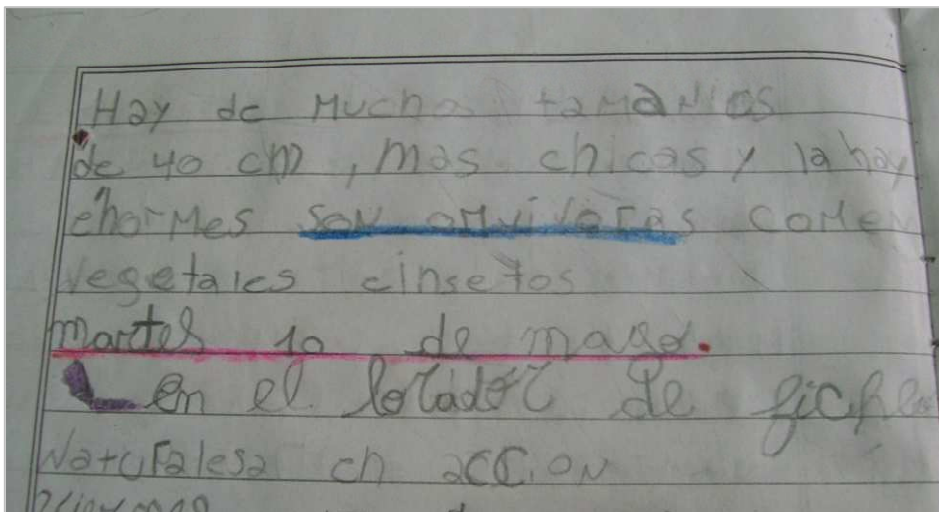 Hay de Muchos tamanios
de 40 cm, mas chicas y la hay
enormes son omnivoras comen
vegetales einsetos
martes 10 de mayo.
en el borador de fichas
Naturalesa en accion